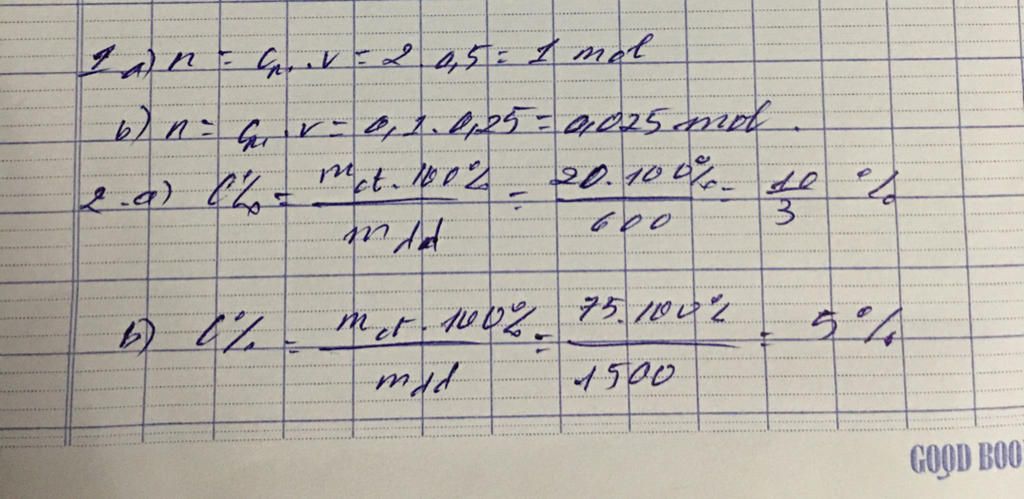 1 a) n = C_M . V = 2 . 0,5 = 1 mol
b) n = C_M . V = 0,1 . 0,25 = 0,025 mol .
2 . a) C% = \frac{m_{ct} . 100%}{m_{dd}} = \frac{20 . 100%}{600} = \frac{10}{3} %
b) C% = \frac{m_{ct} . 100%}{m_{dd}} = \frac{75 . 100%}{1500} = 5 %
GOOD